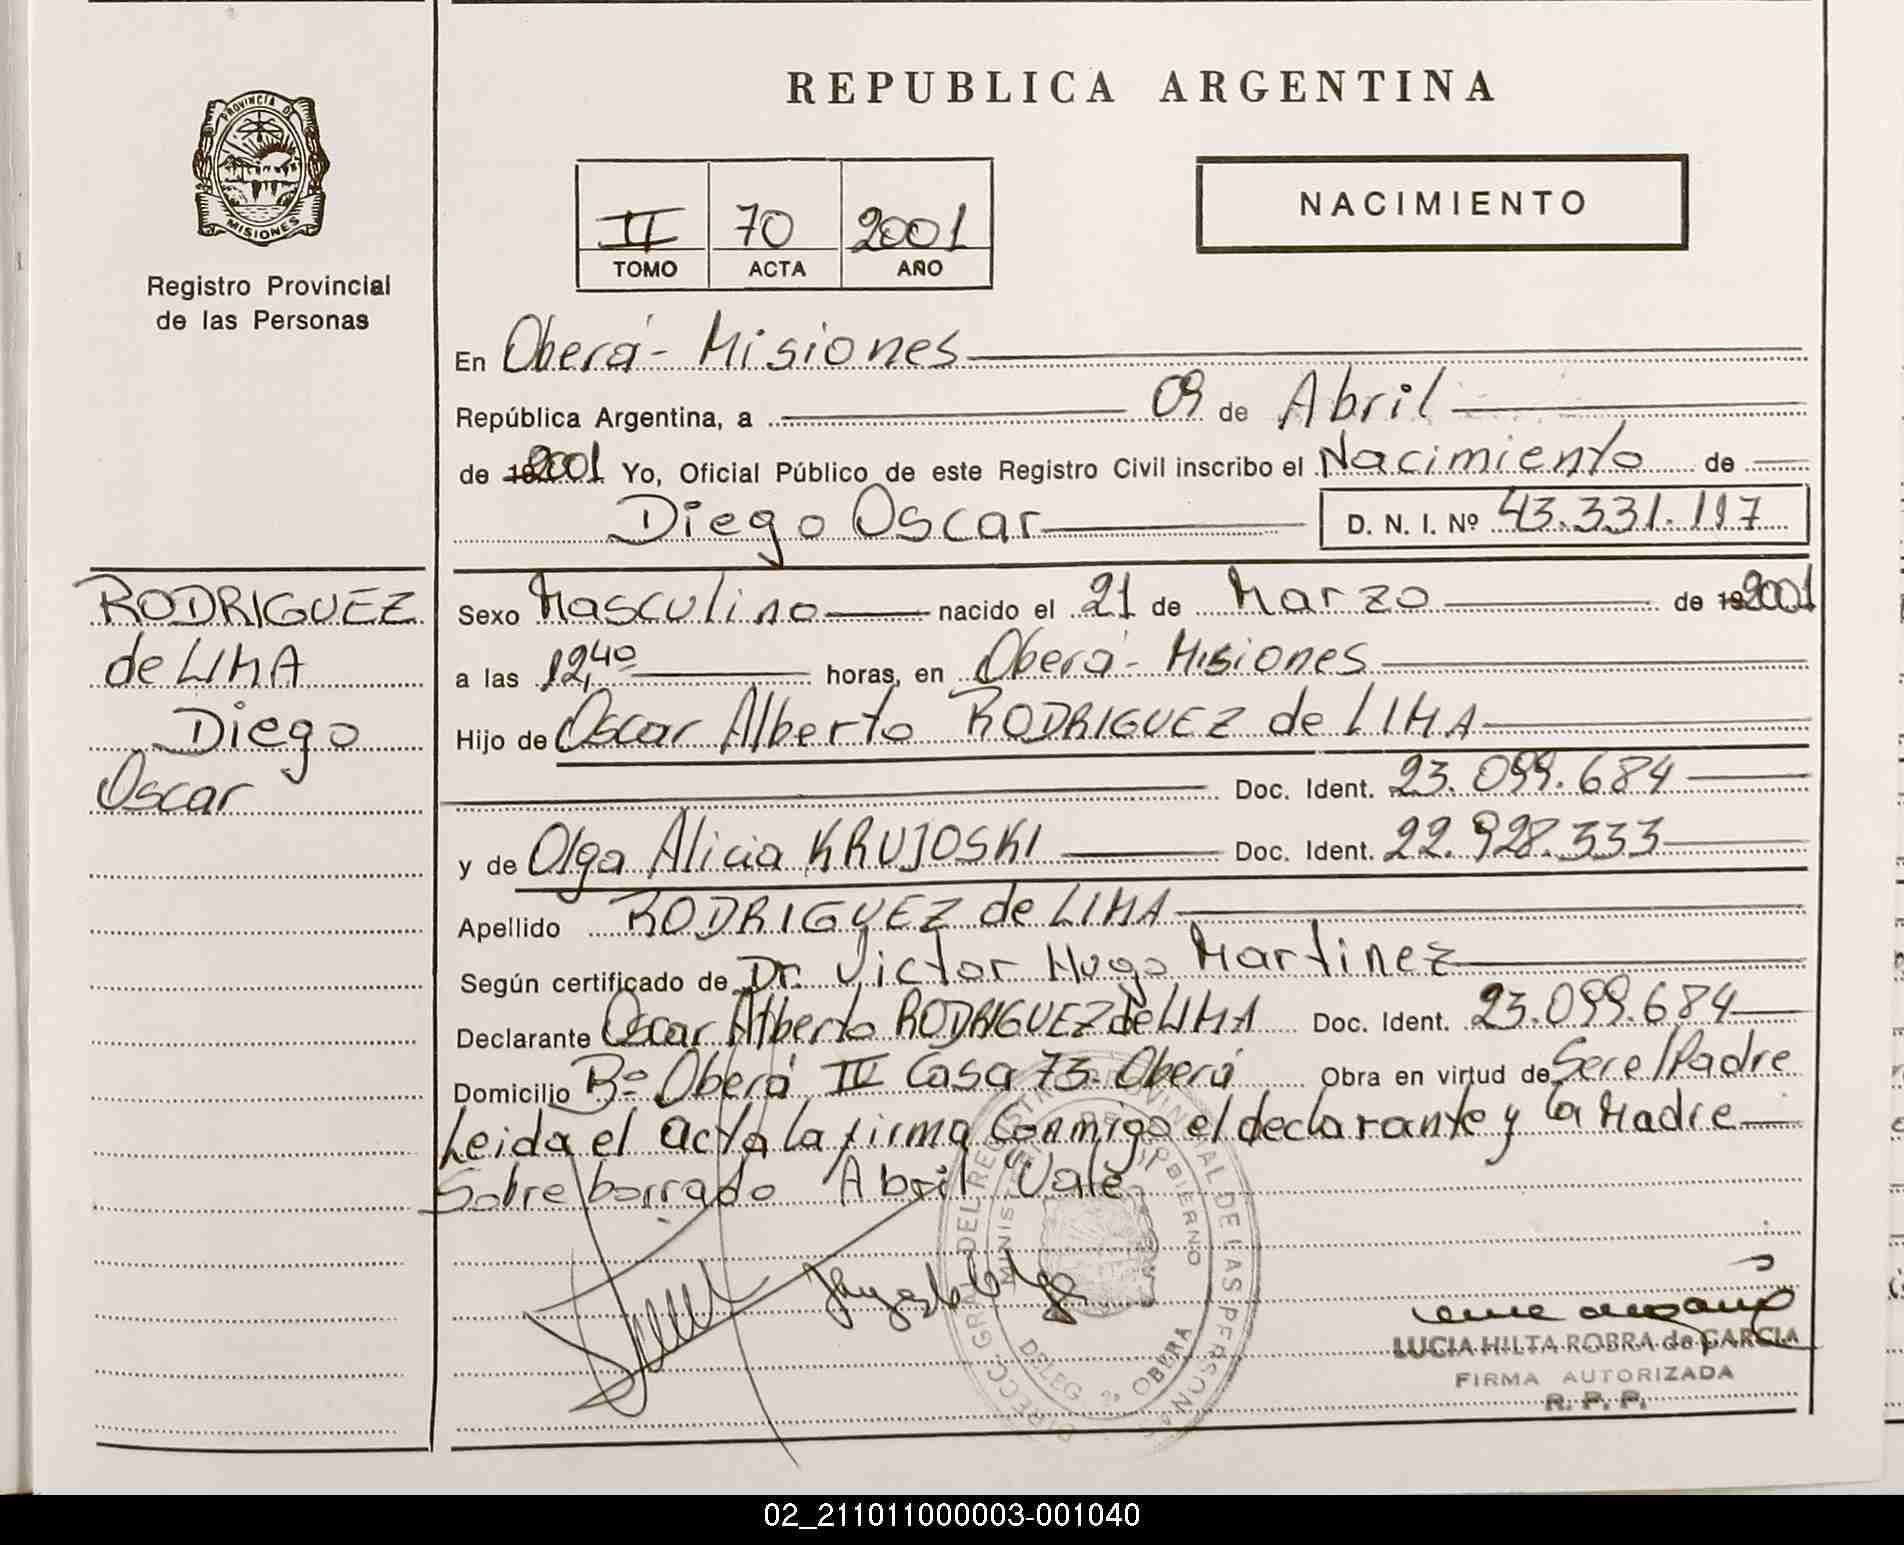 REPUBLICA ARGENTINA
PROVINCIA DE
MISIONES
Registro Provincial
de las Personas
II 70 2001
TOMO ACTA AÑO
NACIMIENTO
En Oberá - Misiones
República Argentina, a 09 de Abril
de 192001 Yo, Oficial Público de este Registro Civil inscribo el Nacimiento de
Diego Oscar D. N. I. Nº 43.331.117
RODRIGUEZ
de LIMA
Diego
Oscar
Sexo Masculino nacido el 21 de Marzo de 192001
a las 12,40 horas, en Oberá - Misiones
Hijo de Oscar Alberto RODRIGUEZ de LIMA
Doc. Ident. 23.099.684
y de Olga Alicia KRUJOSKI Doc. Ident. 22.928.333
Apellido RODRIGUEZ de LIMA
Según certificado de Dr. Victor Hugo Martinez
Declarante Oscar Alberto RODRIGUEZ de LIMA Doc. Ident. 23.099.684
Domicilio Bº Oberá IV Casa 73- Oberá Obra en virtud de Ser el Padre
Leida el acta la firma Conmigo el declarante y la Madre
Sobre borrado "Abril" Vale
DELEG. 2, OBERÁ
LUCIA HILTA ROBRA de GARCIA
FIRMA AUTORIZADA
R. P. P.
02_211011000003-001040